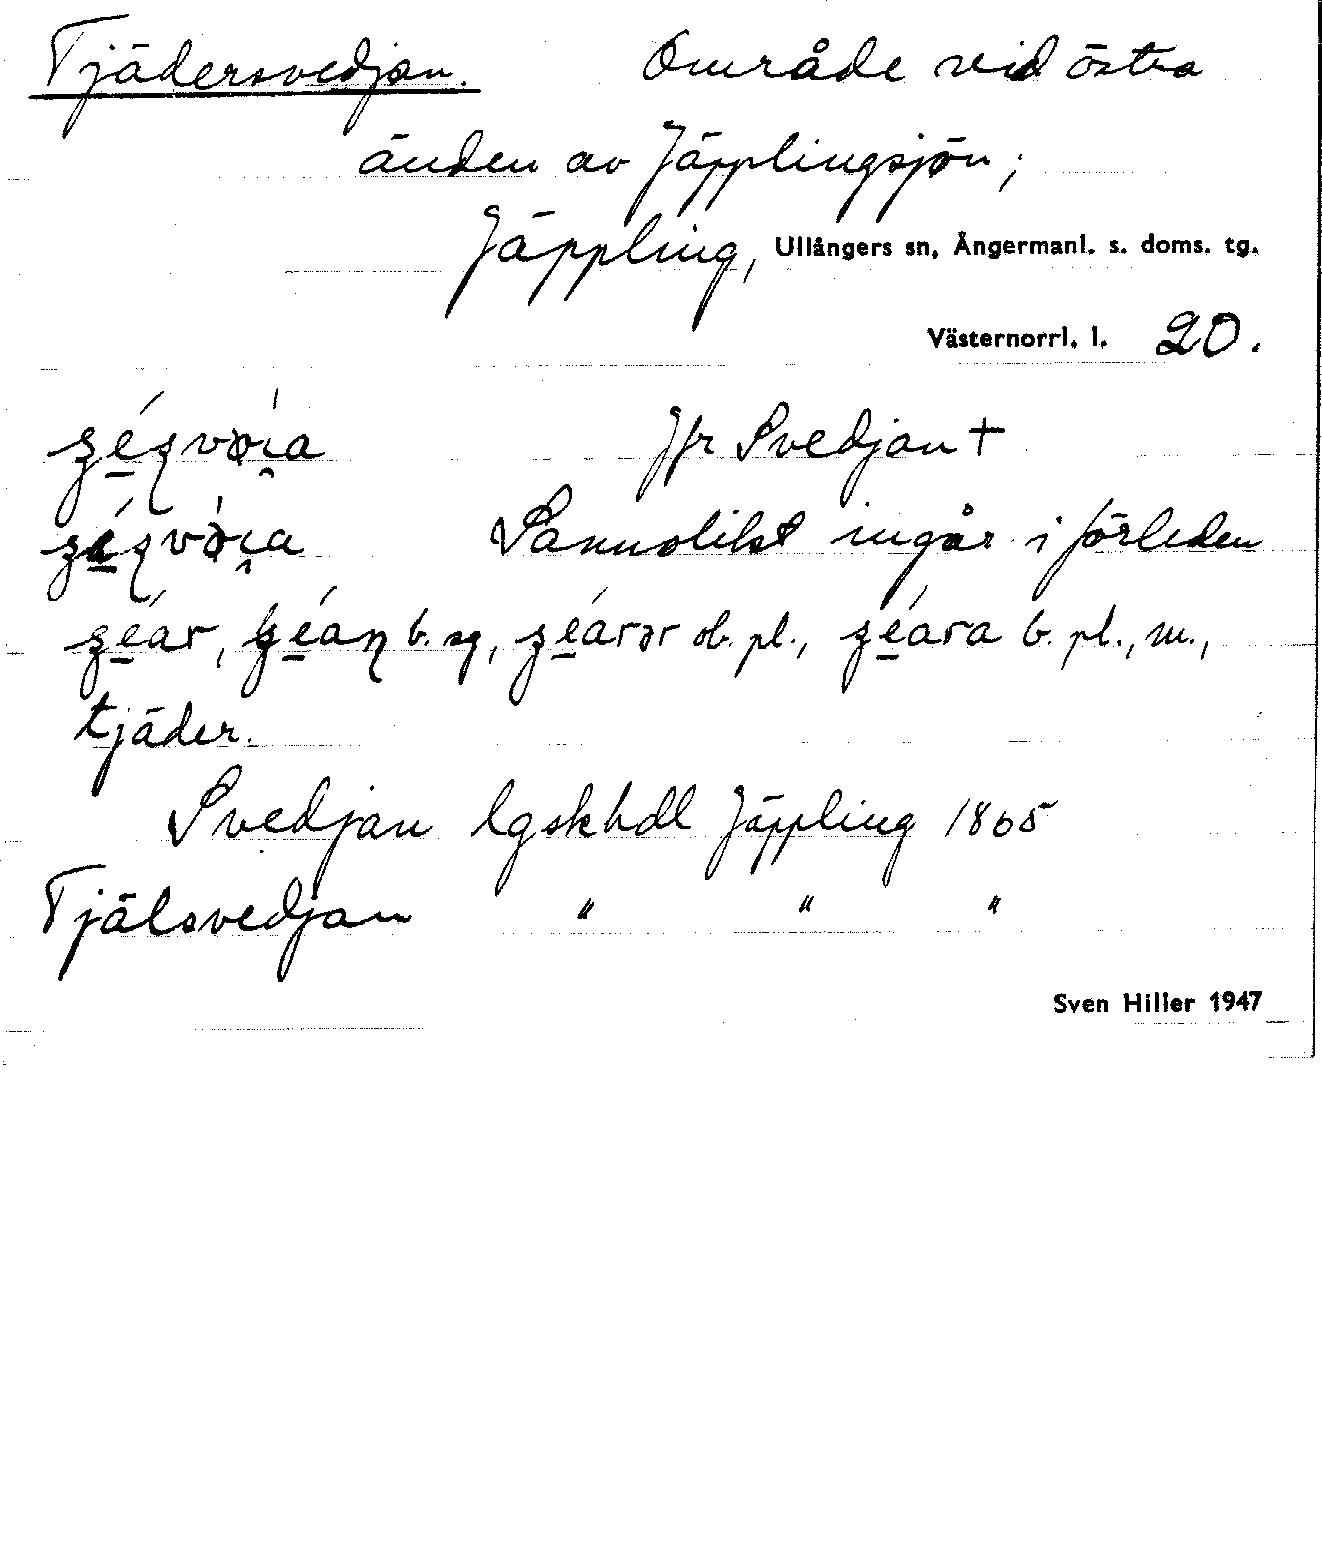 Tjädersvedjan. Område vid östra
änden av Jäpplingsjön;
Jäppling, Ullångers sn, Ångermanl. s. doms. tg.
Västernorrl. l. 20.
Jfr Svedjan +
Sannolikt ingår i förleden
b. sg, ob. pl., b. pl., m.,
tjäder.
Svedjan lgskhdl Jäppling 1865
Tjälsvedjan " " "
Sven Hiller 1947